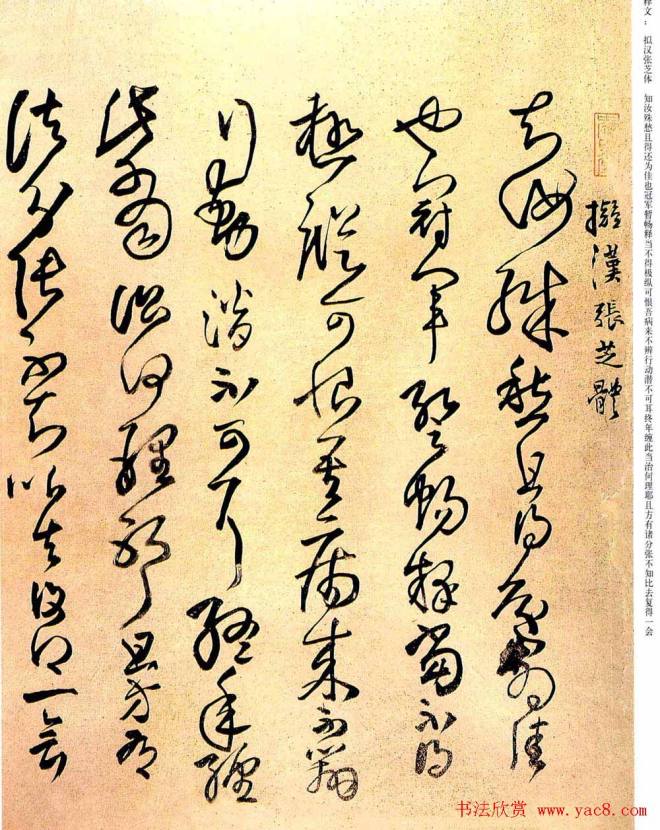 释文： 拟汉张芝体 知汝殊愁且得还为佳也冠军暂畅释当不得极纵可恨吾病来不辨行动潜不可耳终年缠此当治何理耶且方有诸分张不知比去复得一会
擬漢張芝體
知汝殊愁且得還為佳
也冠軍暫暢釋當不得
極縱可恨吾病來不辨
行動潛不可耳終年纏
此當治何理耶且方有
諸分張不知比去復得一會
书法欣赏 www.yac8.com